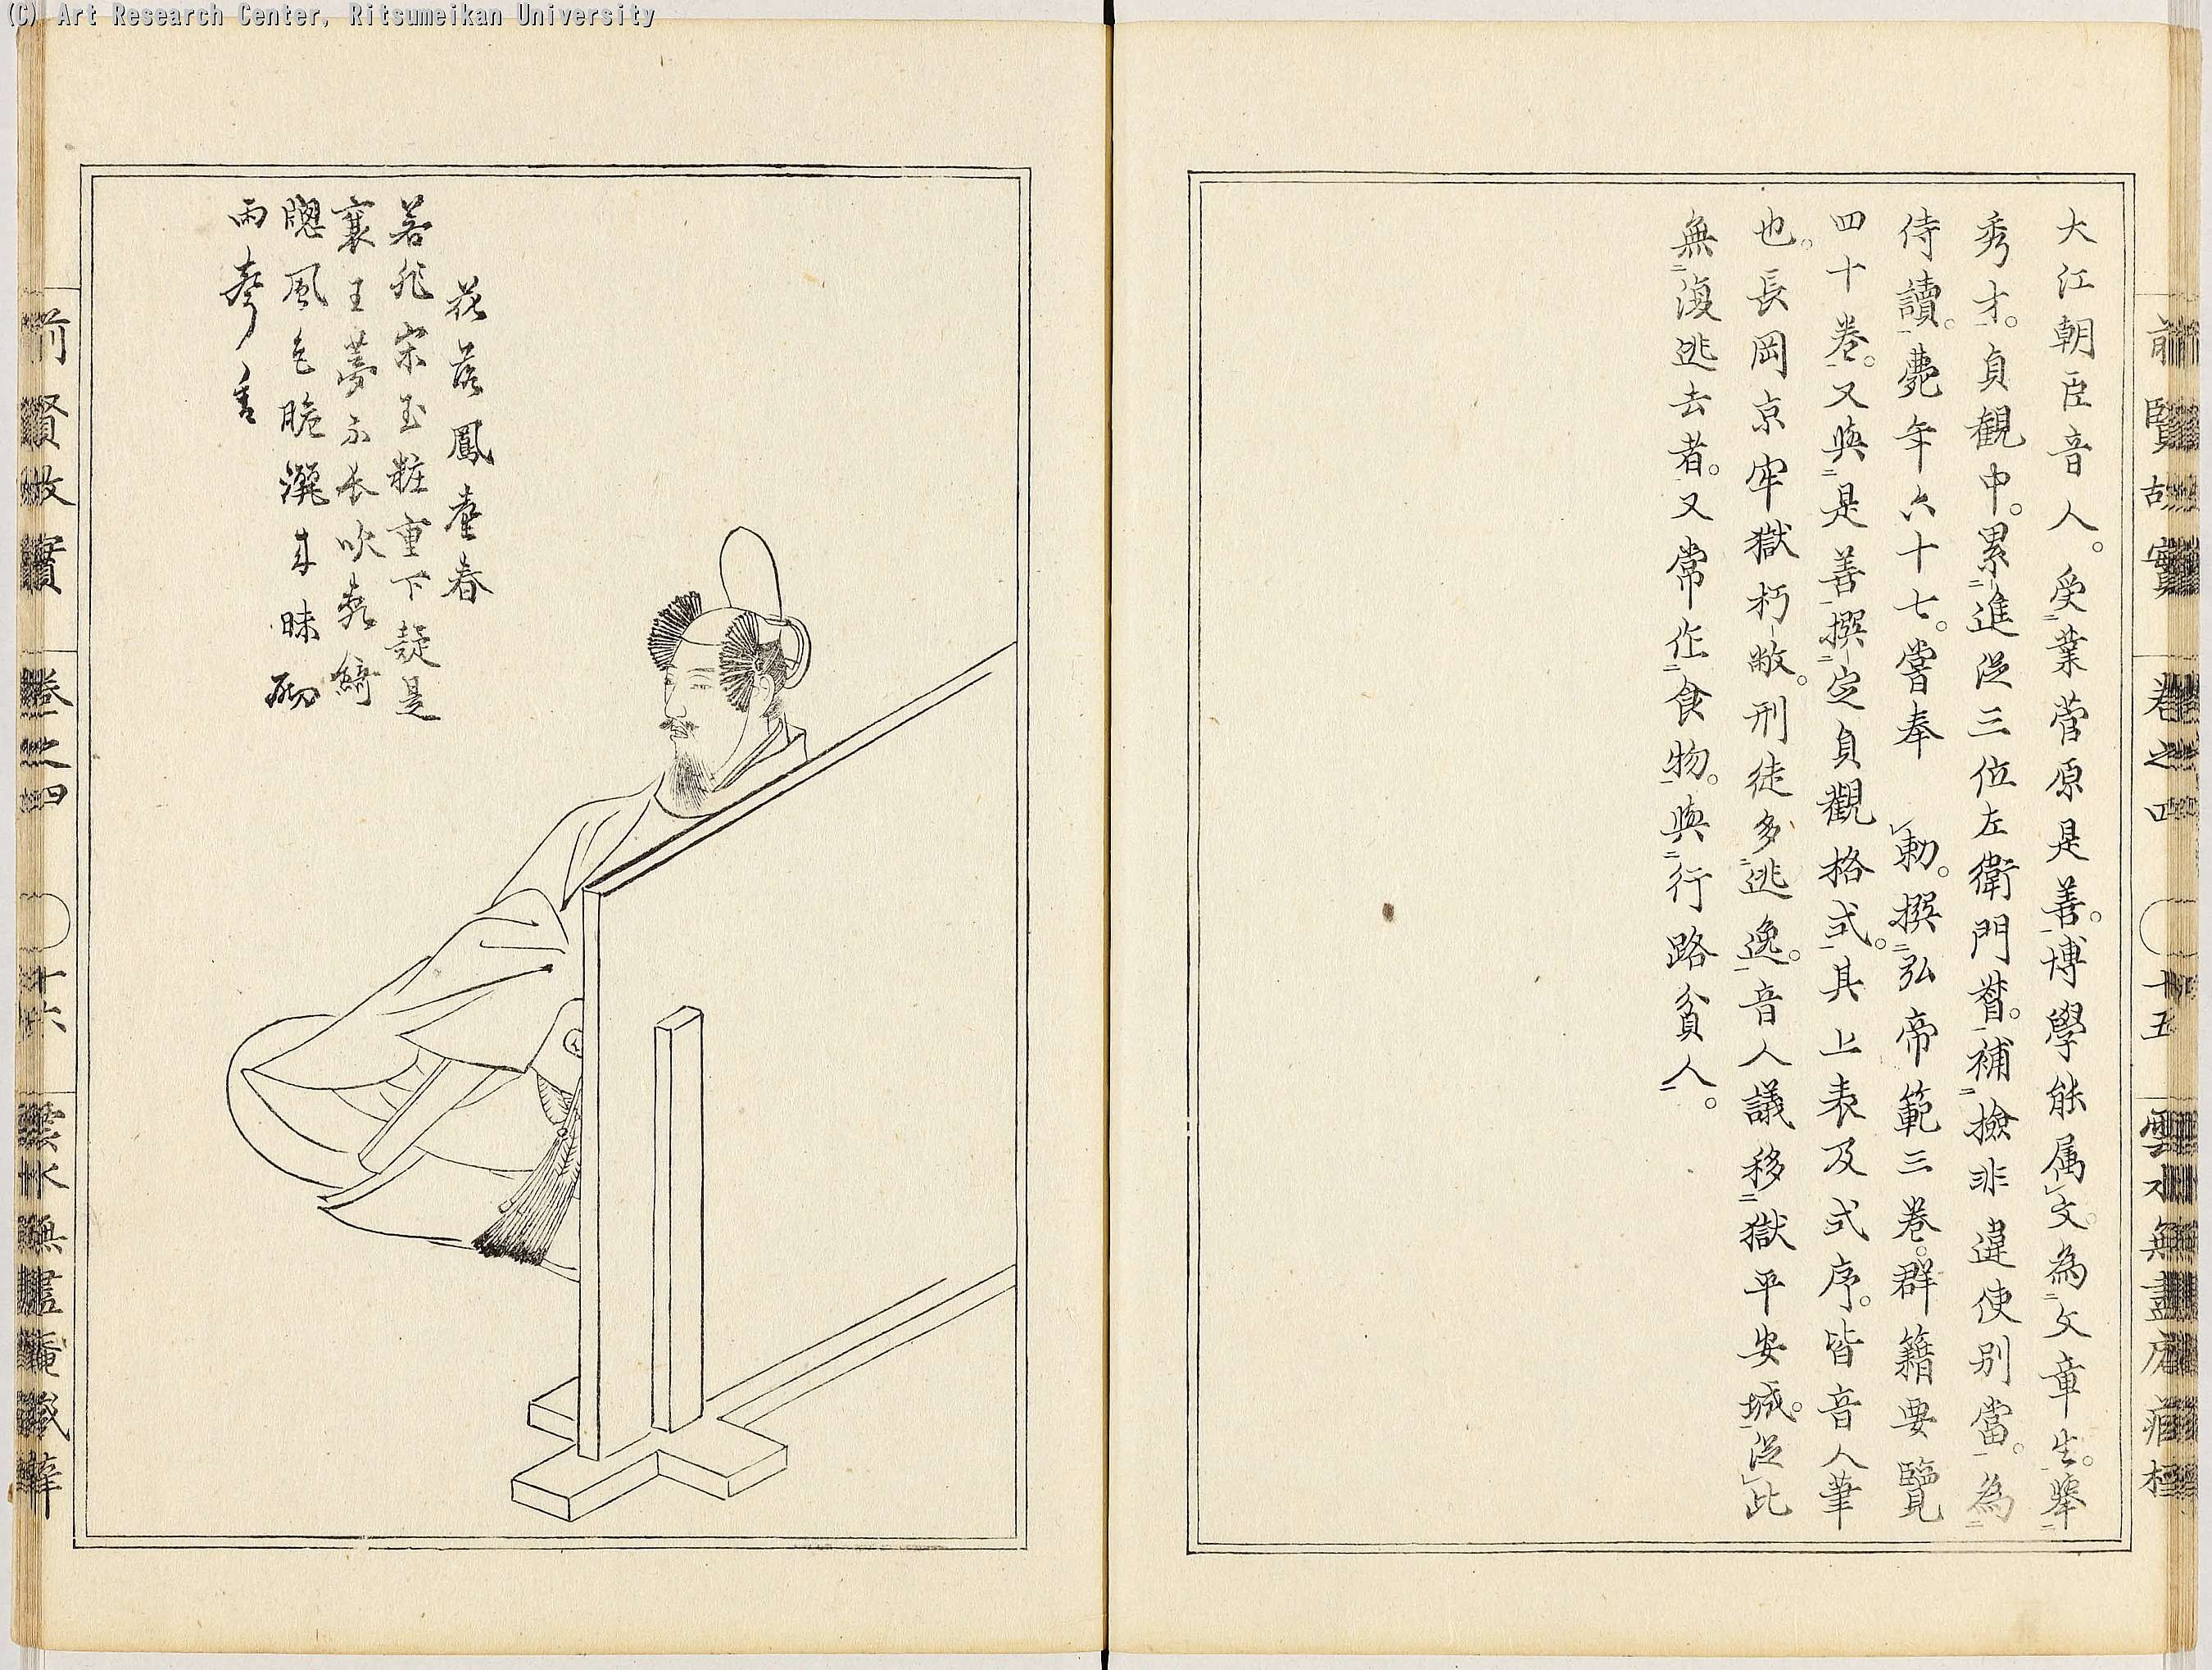 (C) Art Research Center, Ritsumeikan University
前賢故實 巻之四 十五
大江朝臣音人。受業菅原是善。博學能属文。為文章生。舉
秀才。貞観中。累進從三位左衛門督。補撿非違使別當。為
侍讀。薨年六十七。嘗奉 勅。撰弘帝範三巻。群籍要覽
四十巻。又與是善撰定貞觀格式。其上表及式序。皆音人筆
也。長岡京牢獄朽敝。刑徒多逃逸。音人議移獄平安城。從此
無復逃去者。又常作食物。與行路貧人。
花落鳳臺春
若非宋玉粧重下疑是
襄王夢不長吹亂綺
牎風色脆灑來昧砌
雨聲香
前賢故實 巻之四 十六